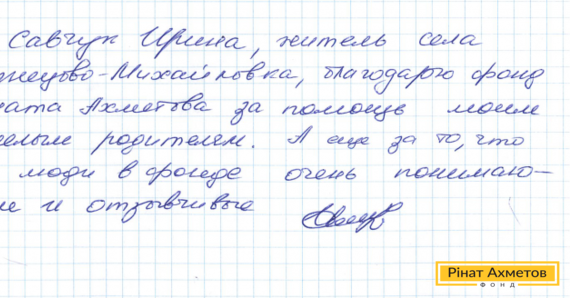 Савчук Ирина, житель села
нецово-Михайловка, благодарю фонд
ата Ахметова за помощь моим
елым родителем. А еще за то, что
люди в фонде очень понимаю-
ие и отзывчивые
Рінат Ахметов
ФОНД